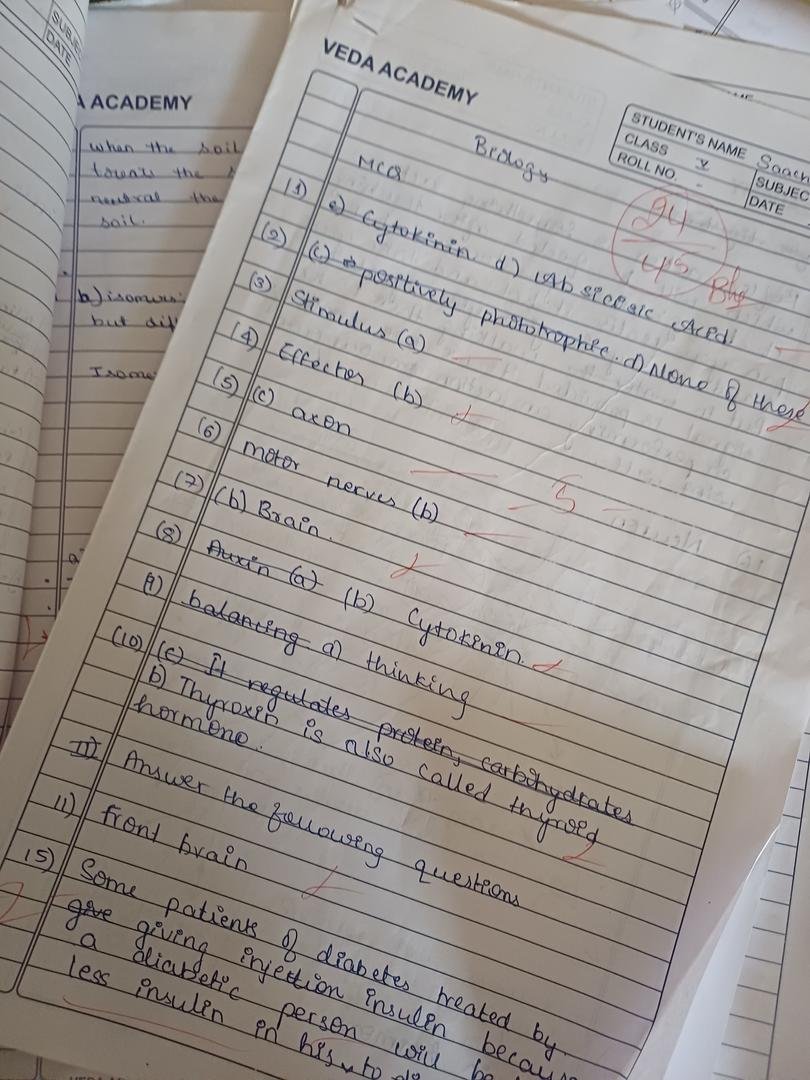 SUBJE
DATE
A ACADEMY
when the soil
towards the
neutral the
soil.
b) isomers:
but dif
Isome
VEDA ACADEMY
STUDENT'S NAME Saach
CLASS X
ROLL NO. -
SUBJEC
DATE
Biology
24
45
MCQ
(1) c) Cytokinin d) Abscissic Acid.
(2) (c) positively phototrophic. d) None of these
(3) Stimulus (a)
(4) Effector (b)
(5) (c) axon
5
(6) motor nerves (b)
(7) (b) Brain.
(8) Auxin (a) (b) Cytokinin.
9) balancing a) thinking
(10) (c) It regulates protein, carbohydrates
b) Thyroxin is also called thyroid
hormone.
II) Answer the following questions
11) front brain
15) Some patients of diabetes treated by
give giving injection insulin because
a diabetic person will be
less insulin in his to